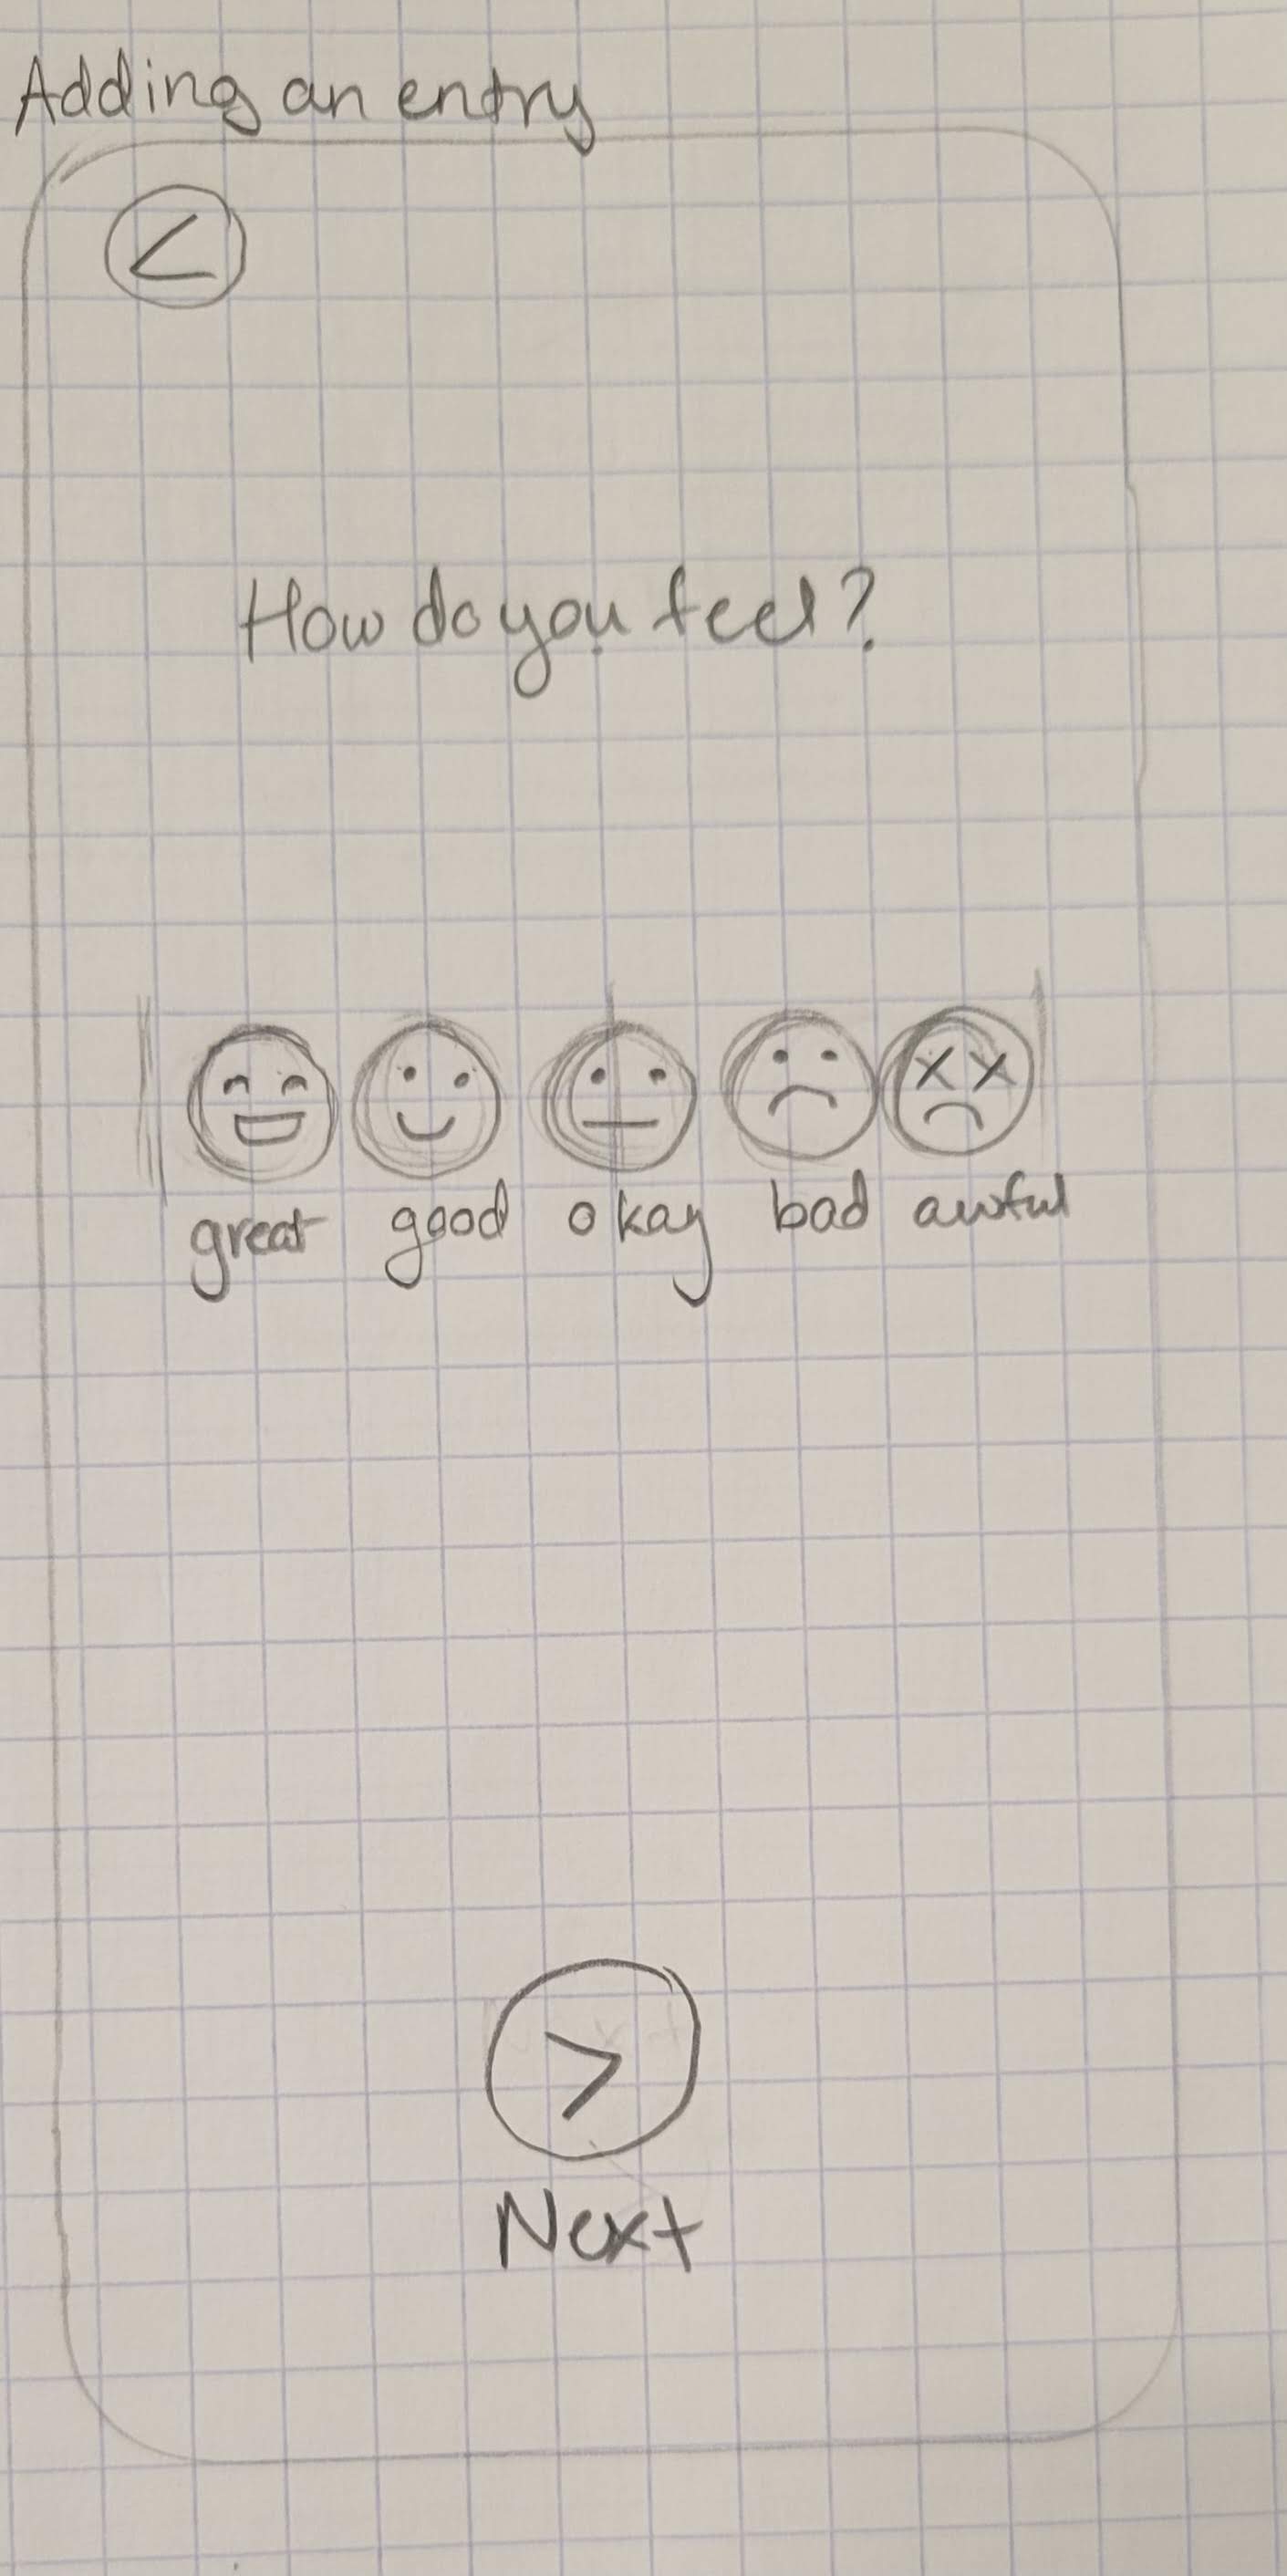 Adding an entry
<
How do you feel?
great good okay bad awful
>
Next